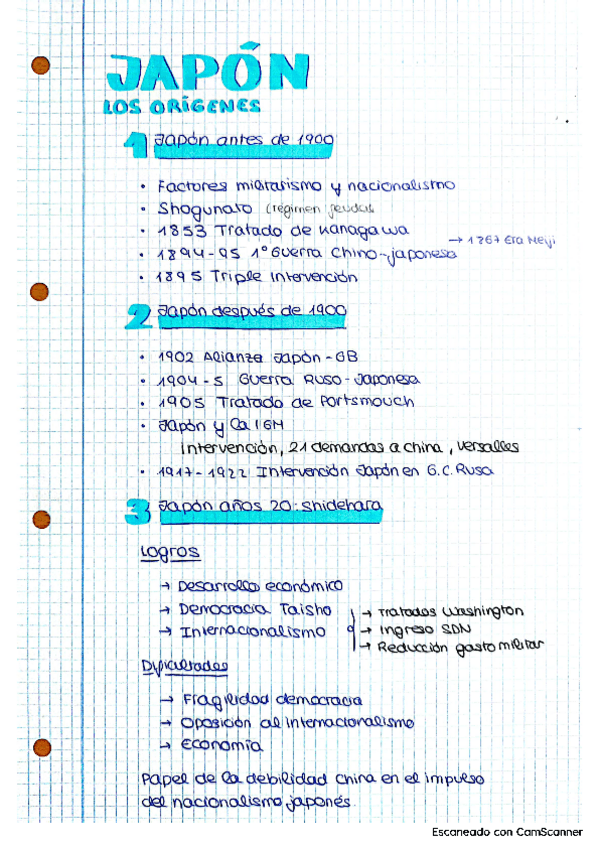 JAPÓN
LOS ORÍGENES
1 Japón antes de 1900
• Factores militarismo y nacionalismo
• Shogunato (régimen feudal
• 1853 Tratado de Kanagawa
→ 1267 Era Meiji
• 1894-95 1º Guerra Chino-japonesa
• 1895 Triple Intervención
2 Japón después de 1900
• 1902 Alianza Japón - GB
• 1904-5 Guerra Ruso-Japonesa
• 1905 Tratado de Portsmouth
• Japón y la IGM
intervención, 21 demandas a china, versalles
• 1917-1922 Intervención Japón en G.C. Rusa
3 Japón años 20: shidehara
Logros
→ Desarrollo económico
→ Democracia Taisho
→ Internacionalismo
→ Tratados Washington
→ Ingreso SDN
→ Reducción gasto militar
Dificultades
→ Fragilidad democracia
→ Oposición al internacionalismo
→ Economía
Papel de la debilidad china en el impulso
del nacionalismo japonés.
Escaneado con CamScanner